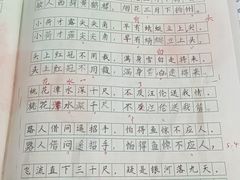 故人西辞黄鹤楼，烟花三月下扬州。
小荷才露尖尖角，早有蜻蜓立上头。
小荷才露尖尖角，早有蜻蜓立上头。
头上红冠不用裁，满身雪白走将来。
头上红冠不用裁，满身雪白走将来。
桃花潭水深千尺，不及汪伦送我情。
桃花潭水深千尺，不及汪伦送我情。
路人借问遥招手，怕得鱼惊不应人。
路人借问遥招手，怕得鱼惊不应人。
5.4
飞流直下三千尺，疑是银河落九天。